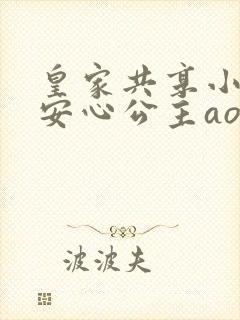 皇家共享小
安心公主ao
波波夫